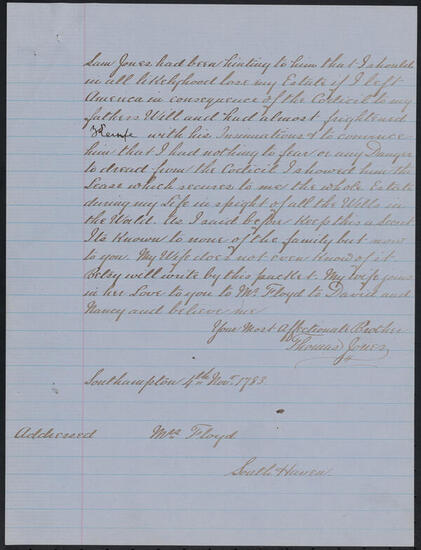 Sam Jones had been hinting to him that I should
in all likelyhood lose my Estate if I left
America in consequence of the Codicil to my
fathers Will and had almost frightened
Kempe with his Insinuations & to convince
him that I had nothing to fear or any Danger
to dread from the Codicil I showed him the
Lease which secures to me the whole Estate
during my Life in spight of all the Wills in
the World. As I said before keep this a secret
Its Known to none of the family but now
to you. My Wife does not even Know of it.
Betsy will write by this packet. My wife joins
in her Love to you to Mr Floyd to David and
Nancy and believe me
Your Most Affectionate Brother
Thomas Jones
Southampton 4th Novr. 1783.
Addressed Mrs Floyd
South Haven